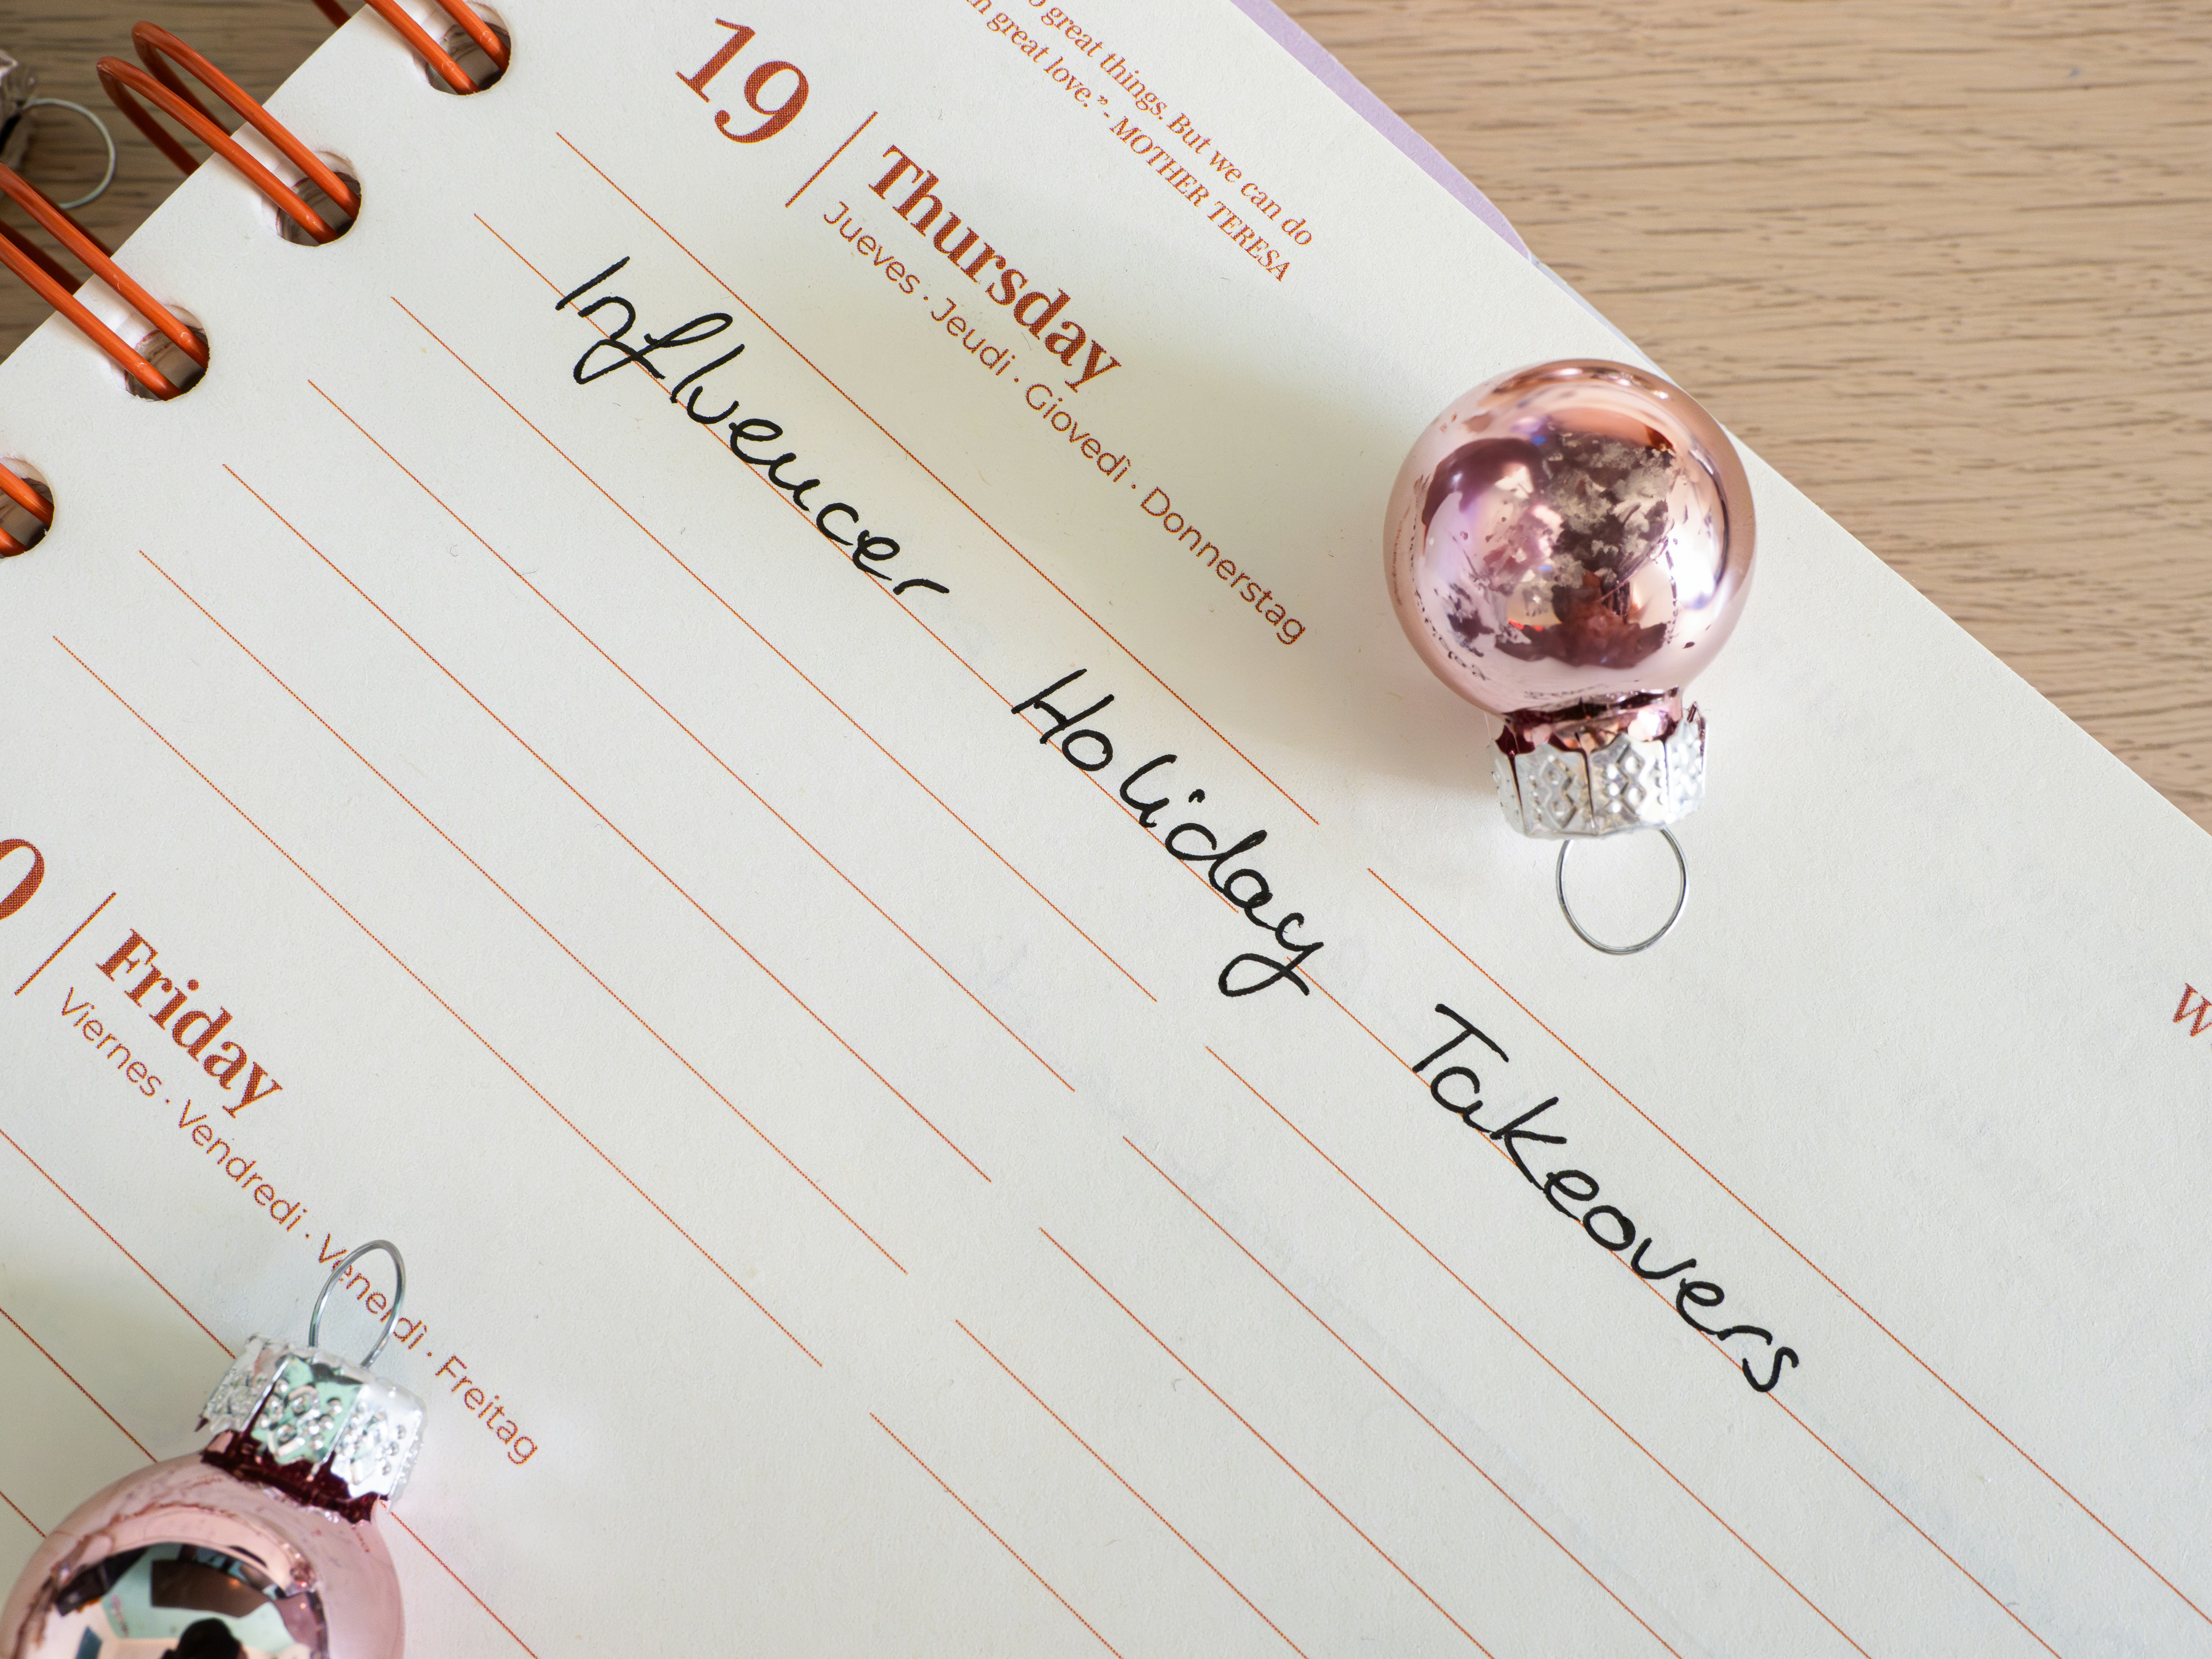 great things. But we can do
great love.” - MOTHER TERESA
19
Thursday
Jueves · Jeudi · Giovedì · Donnerstag
Influencer Holiday Takeovers
Friday
Viernes · Vendredi · Venerdì · Freitag